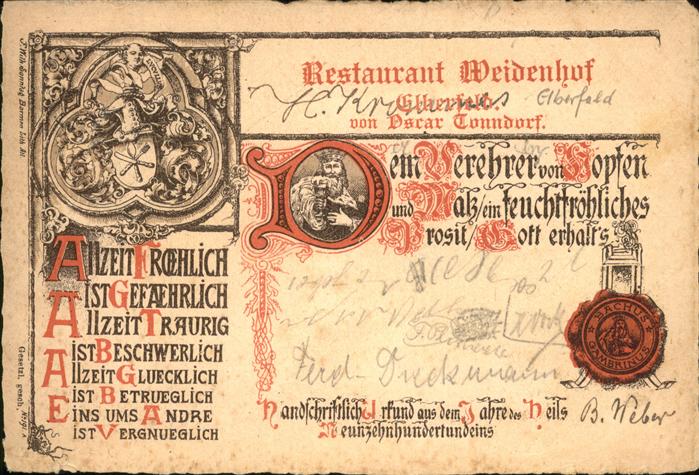 Restaurant Weidenhof
Elberfeld.
Elberfeld
von Oscar Tonndorf.
Dem Verehrer von Hopfen
und Malz/ein feuchtfröhliches
Prosit/Gott erhalt's
ALLZEIT FROEHLICH
IST GEFAEHRLICH
ALLZEIT TRAURIG
IST BESCHWERLICH
ALLZEIT GLUECKLICH
IST BETRUEGLICH
EINS UMS ANDRE
IST VERGNUEGLICH
BACHUS
GAMBRINUS
Ferd. Dieckmann
Handschriftlich Urkund aus dem Jahre des Heils
Neunzehnhundertundeins
B. Weber
Gesetzl. gesch.